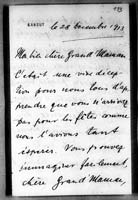 le 28 décembre 1913
Ma bien chère Grand Maman,
C'était une vive décep-
tion pour nous tous d'ap-
prendre que vous n'arrivez
pas pour les fêtes, comme
nous l'avions tant
espéré. Vous pouvez
immaginer facilement,
chère Grand Maman,